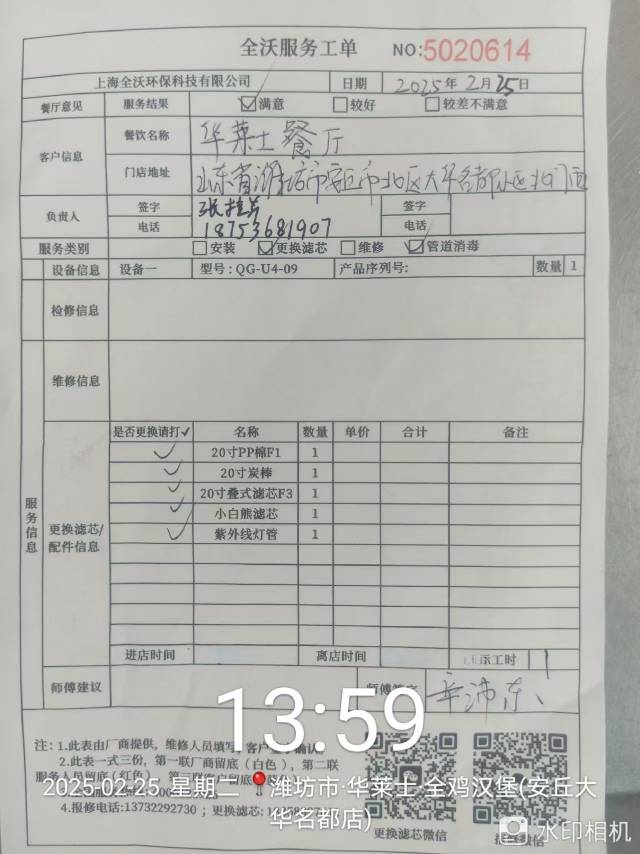 全沃服务工单 NO:5020614
上海全沃环保科技有限公司 日期 2025年2月25日
餐厅意见 服务结果 ☑满意 □较好 □较差不满意
客户信息 餐饮名称 华莱士餐厅
门店地址 山东省潍坊市安丘市北区大华名都小区北门面
负责人 签字 签字
电话 18753681907 电话
服务类别 □安装 ☑更换滤芯 □维修 ☑管道消毒
设备信息 设备一 型号:QG-U4-09 产品序列号: 数量 1
检修信息
维修信息
服务信息
更换滤芯/配件信息
是否更换请打✓ 名称 数量 单价 合计 备注
✓ 20寸PP棉F1 1
✓ 20寸炭棒 1
✓ 20寸叠式滤芯F3 1
✓ 小白熊滤芯 1
✓ 紫外线灯管 1
进店时间 离店时间 工时 1
师傅建议 师傅签字
13:59
注:1.此表由厂商提供,维修人员填写,客户签字确认。
2.此表一式三份,第一联厂商留底(白色),第二联
服务人员留底(红色),
2025-02-25 星期二 潍坊市·华莱士·全鸡汉堡(安丘大
华名都店)
4.报修电话:13732292730;更换滤芯:
更换滤芯微信 报修微信
水印相机